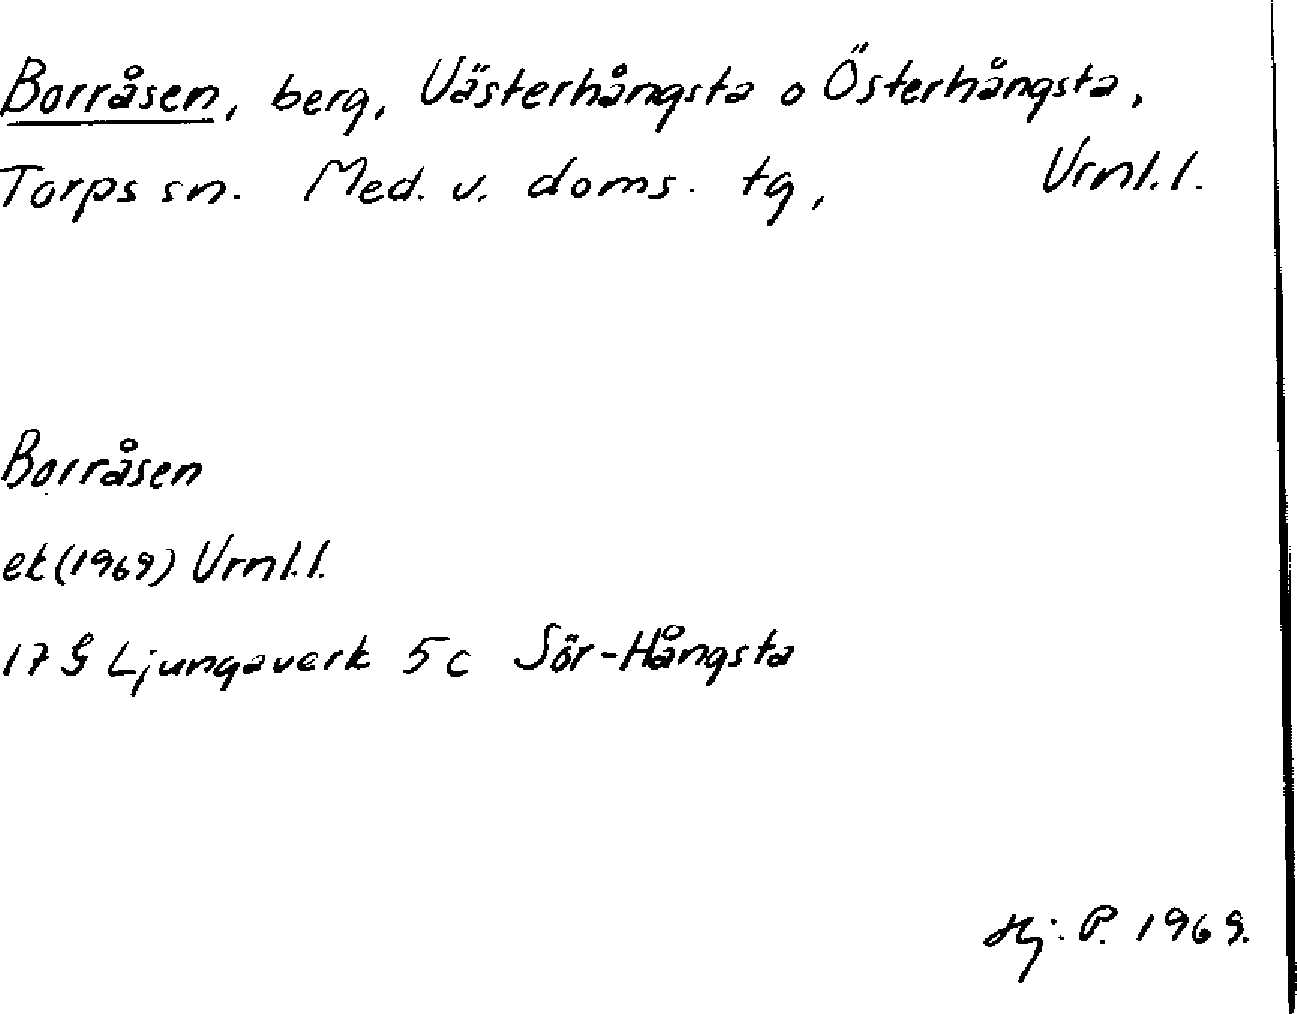 Borråsen, berg, Västerhångsta o Österhångsta,
Torps sn. Med. v. doms. tg, Vrnl. l.
Borråsen
ek (1969) Vrnl. l.
17 G Ljungaverk 5c Sör-Hångsta
Hj. P. 1969.